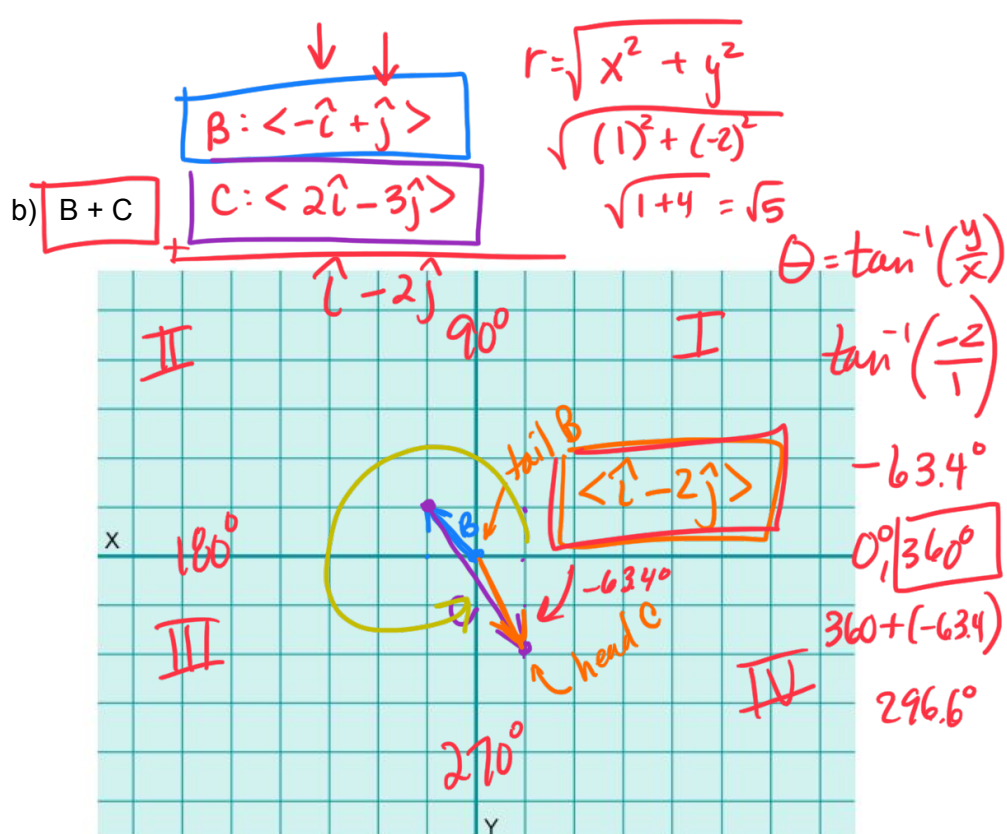 B: <-î + ĵ>
b) B + C
C: <2î - 3ĵ>
+
î - 2ĵ
r = √x² + y²
√(1)² + (-2)²
√1+4 = √5
θ = tan⁻¹(y/x)
tan⁻¹(-2/1)
-63.4°
0°, 360°
360+(-63.4)
296.6°
II
90°
I
tail B
<î - 2ĵ>
B
X
180°
-63.4°
C
head C
III
IV
270°
Y